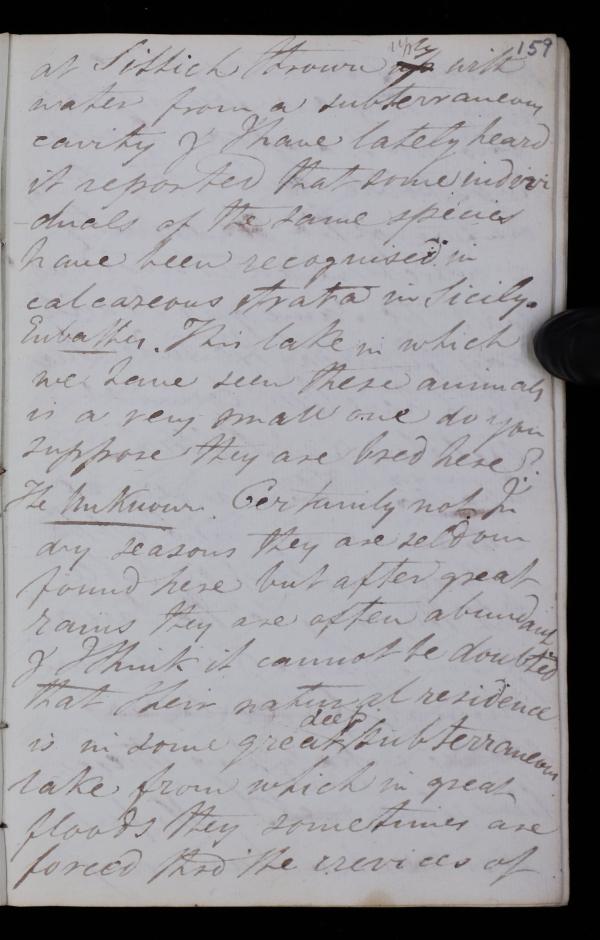 159
at Sittich thrown up with
water from a subterraneous
cavity & I have lately heard
it reported that some indivi
-duals of the same species
have been recognised in
calcareous strata in Sicily.
Eubathes. This lake in which
we have seen these animals
is a very small one do you
suppose they are bred here?
The Unknown. Certainly not In
dry seasons they are seldom
found here but after great
rains they are often abundant
& I think it cannot be doubted
that their natural residence
is in some great deep subterraneous
lake from which in great
floods they sometimes are
forced thro' the crevices of